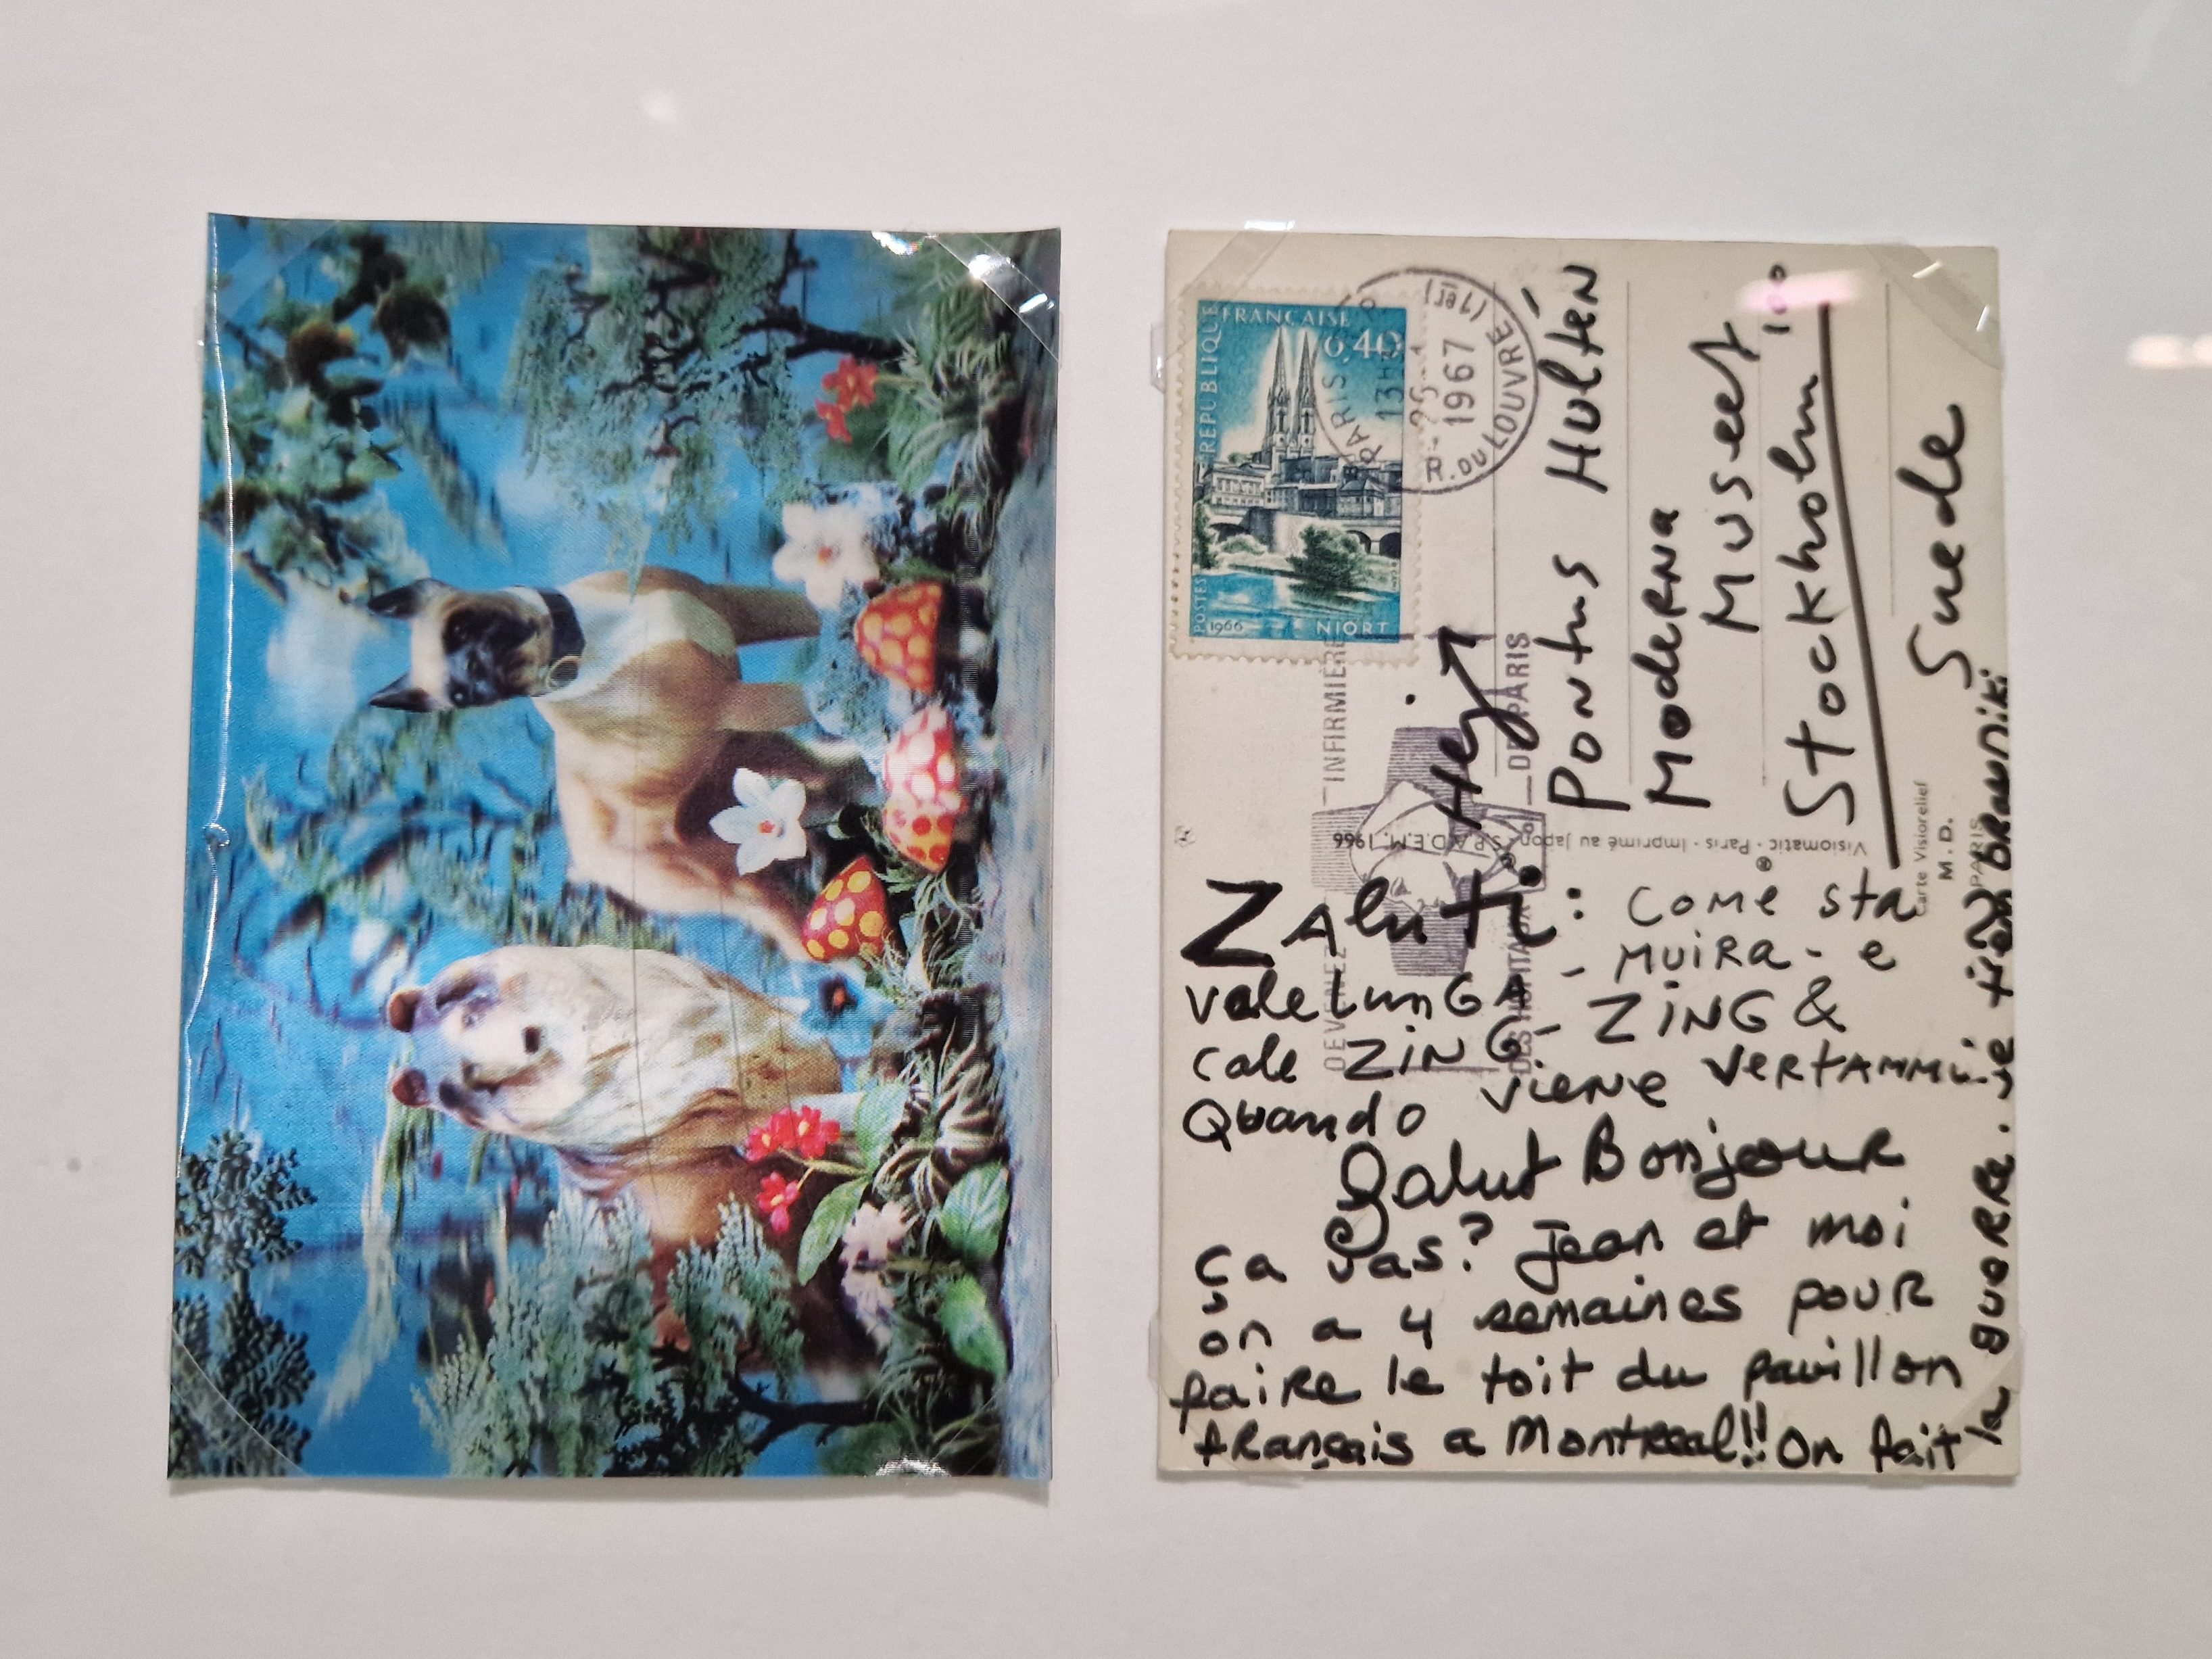 RÉPUBLIQUE FRANÇAISE
0,40
POSTES
1966
NIORT
PARIS
13H
25-1
1967
R. DU LOUVRE (1er)
DEVENEZ INFIRMIÈRE
DES HOPITAUX DE PARIS
Hej
Pontus Hultén
Moderna
Museet
Stockholm
100
Suede
Visiomatic - Paris - Imprimé au Japon - S.P.A.D.E.M. 1966
Carte Visiorelief
M. D.
PARIS
ZAluti: come sta
valelunGA - Muira - e
cale ZiNG - ZiNG &
Quando viene
Salut Bonjour
ça vas? Jean et moi
on a 4 semaines pour
faire le toit du pavillon
français a Montreal!! On fait
la guerre.